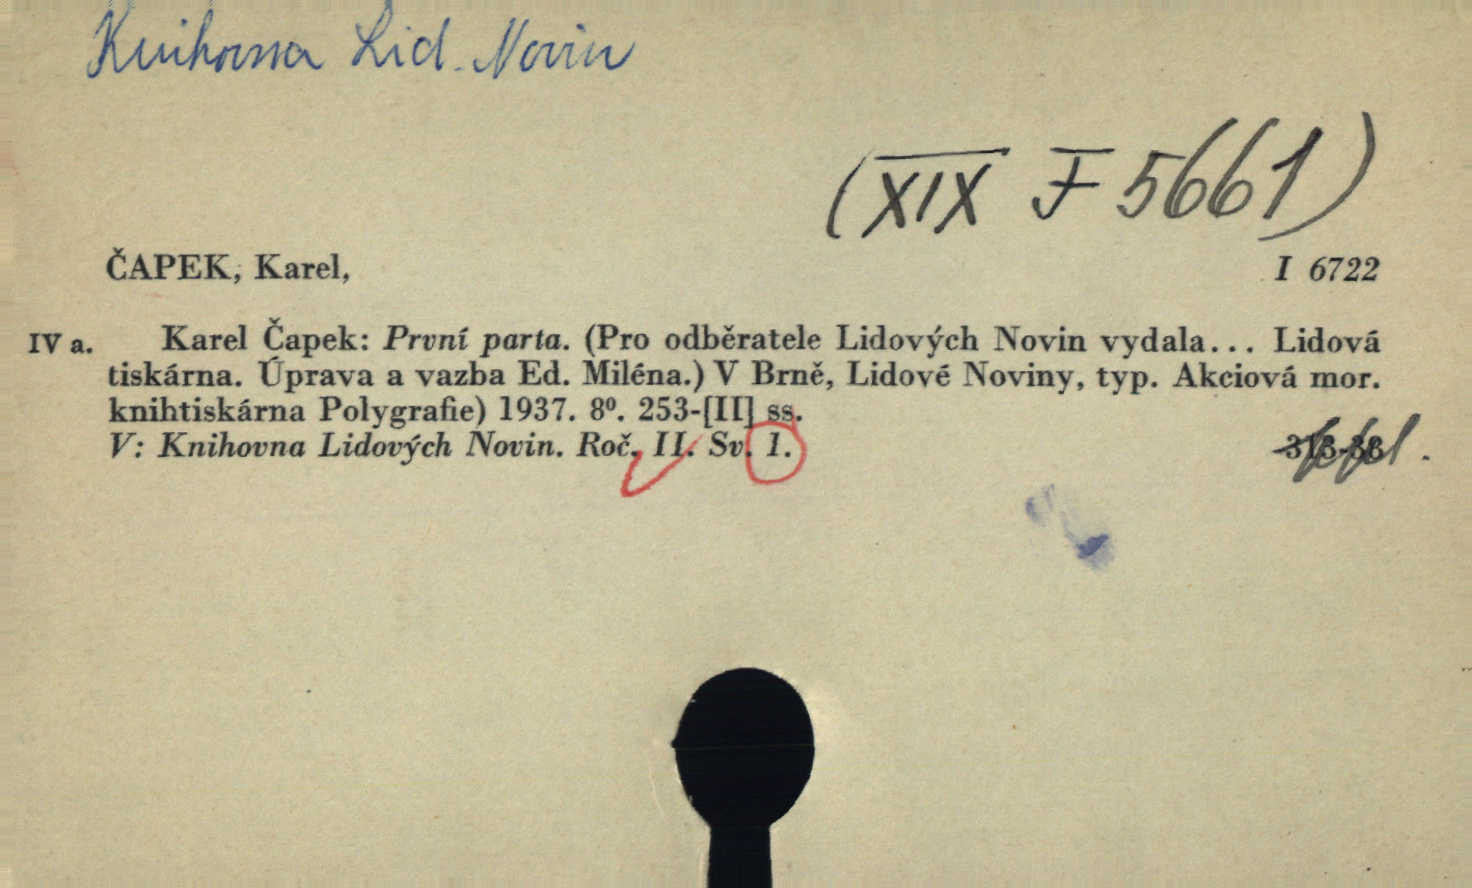 Knihovna Lid. Novin
(XIX F 5661)
ČAPEK, Karel,
I 6722
IV a. Karel Čapek: První parta. (Pro odběratele Lidových Novin vydala... Lidová
tiskárna. Úprava a vazba Ed. Miléna.) V Brně, Lidové Noviny, typ. Akciová mor.
knihtiskárna Polygrafie) 1937. 8º. 253-[II] ss.
V: Knihovna Lidových Novin. Roč. II. Sv. 1.